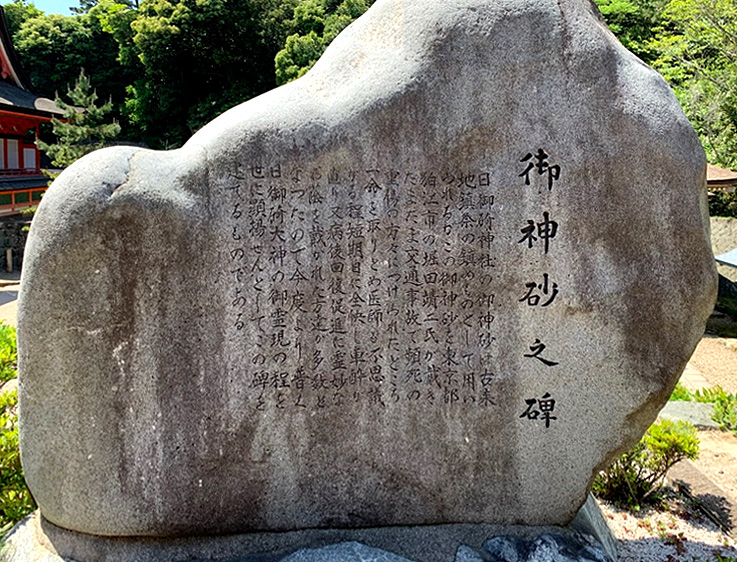 御神砂之碑
日御碕神社の御神砂は古来
地鎮祭の鎮めものとして用い
られるがこの御神砂を東京都
狛江市の堀田靖二氏が戴き
たまたま交通事故で頻死の
重傷の方々につけられたところ
一命を取りとめ医師も不思議
がる程短期日に全快し車酔り
直り又病後回復促進に霊妙な
お蔭を戴かれた方達が多数と
なつたので今度より普く
日御碕大神の御霊現の程を
世に顕揚せんとしてこの碑を
建てるものである